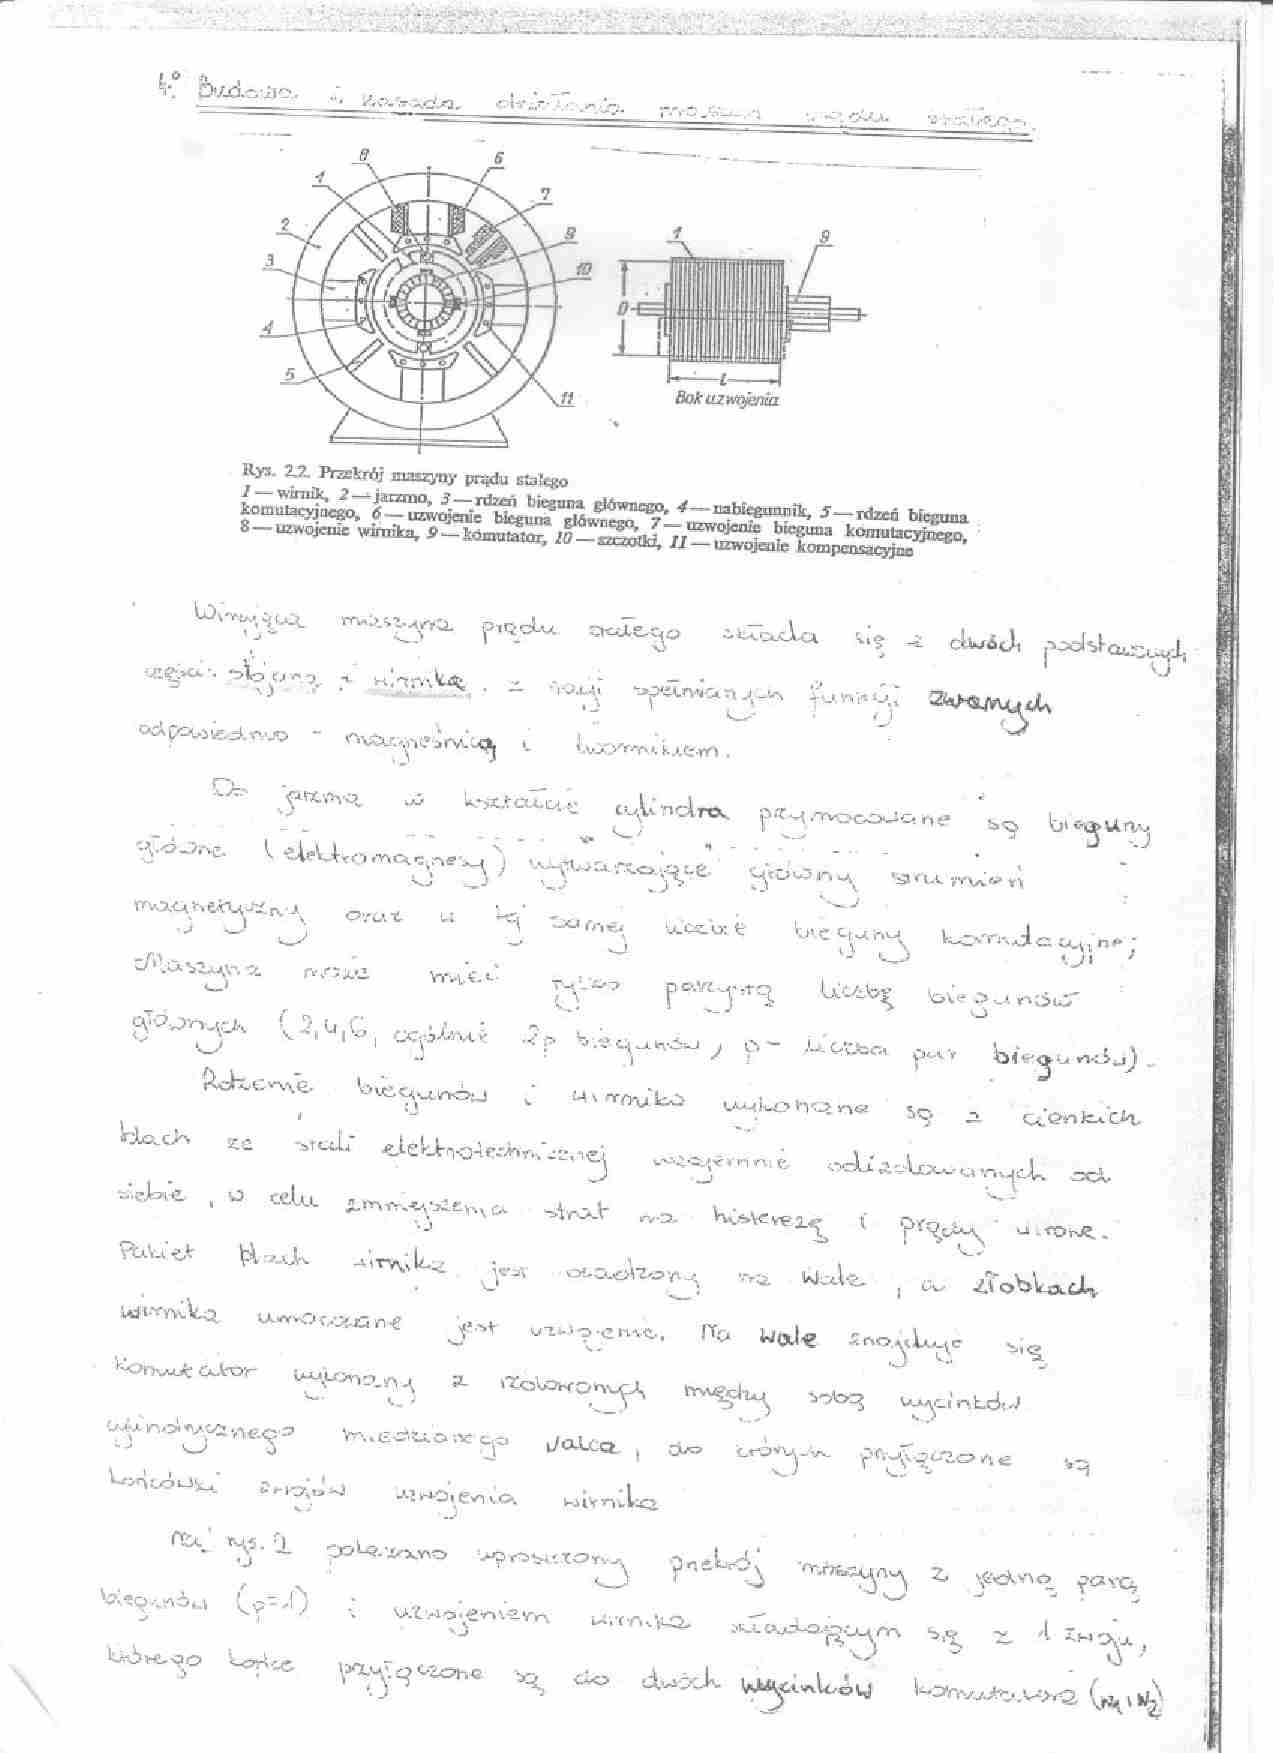 4.° Budowa i zasada działania maszyn prądu stałego.
8 6
1 7
2 9 1 9
3 10
D
4
5 L
11 Bok uzwojenia
Rys. 2.2. Przekrój maszyny prądu stałego
1 — wirnik, 2 — jarzmo, 3 — rdzeń bieguna głównego, 4 — nabiegunnik, 5 — rdzeń bieguna
komutacyjnego, 6 — uzwojenie bieguna głównego, 7 — uzwojenie bieguna komutacyjnego,
8 — uzwojenie wirnika, 9 — komutator, 10 — szczotki, 11 — uzwojenie kompensacyjne
Wirująca maszyna prądu stałego składa się z dwóch podstawowych
części: stojana i wirnika, z racji spełnianych funkcji zwanych
odpowiednio - magneśnicą i twornikiem.
Do jarzma w kształcie cylindra przymocowane są bieguny
główne (elektromagnesy) wytwarzające główny strumień
magnetyczny oraz w tej samej liczbie bieguny komutacyjne;
Maszyna może mieć tylko parzystą liczbę biegunów
głównych (2,4,6, ogólnie 2p biegunów, p- liczba par biegunów).
Rdzenie biegunów i wirnika wykonane są z cienkich
blach ze stali elektrotechnicznej wzajemnie odizolowanych od
siebie, w celu zmniejszenia strat na histerezę i prądy wirowe.
Pakiet blach wirnika jest osadzony na wale, a żłobkach
wirnika umocowane jest uzwojenie. Na wale znajduje się
komutator wykonany z izolowanych między sobą wycinków
cylindrycznego miedzianego walca, do których przyłączone są
końcówki zwojów uzwojenia wirnika
Na rys. 2 pokazano uproszczony przekrój maszyny z jedną parą
biegunów (p=1) i uzwojeniem wirnika składającym się z 1 zwoju,
którego końce przyłączone są do dwóch wycinków komutatora (W1 i W2)